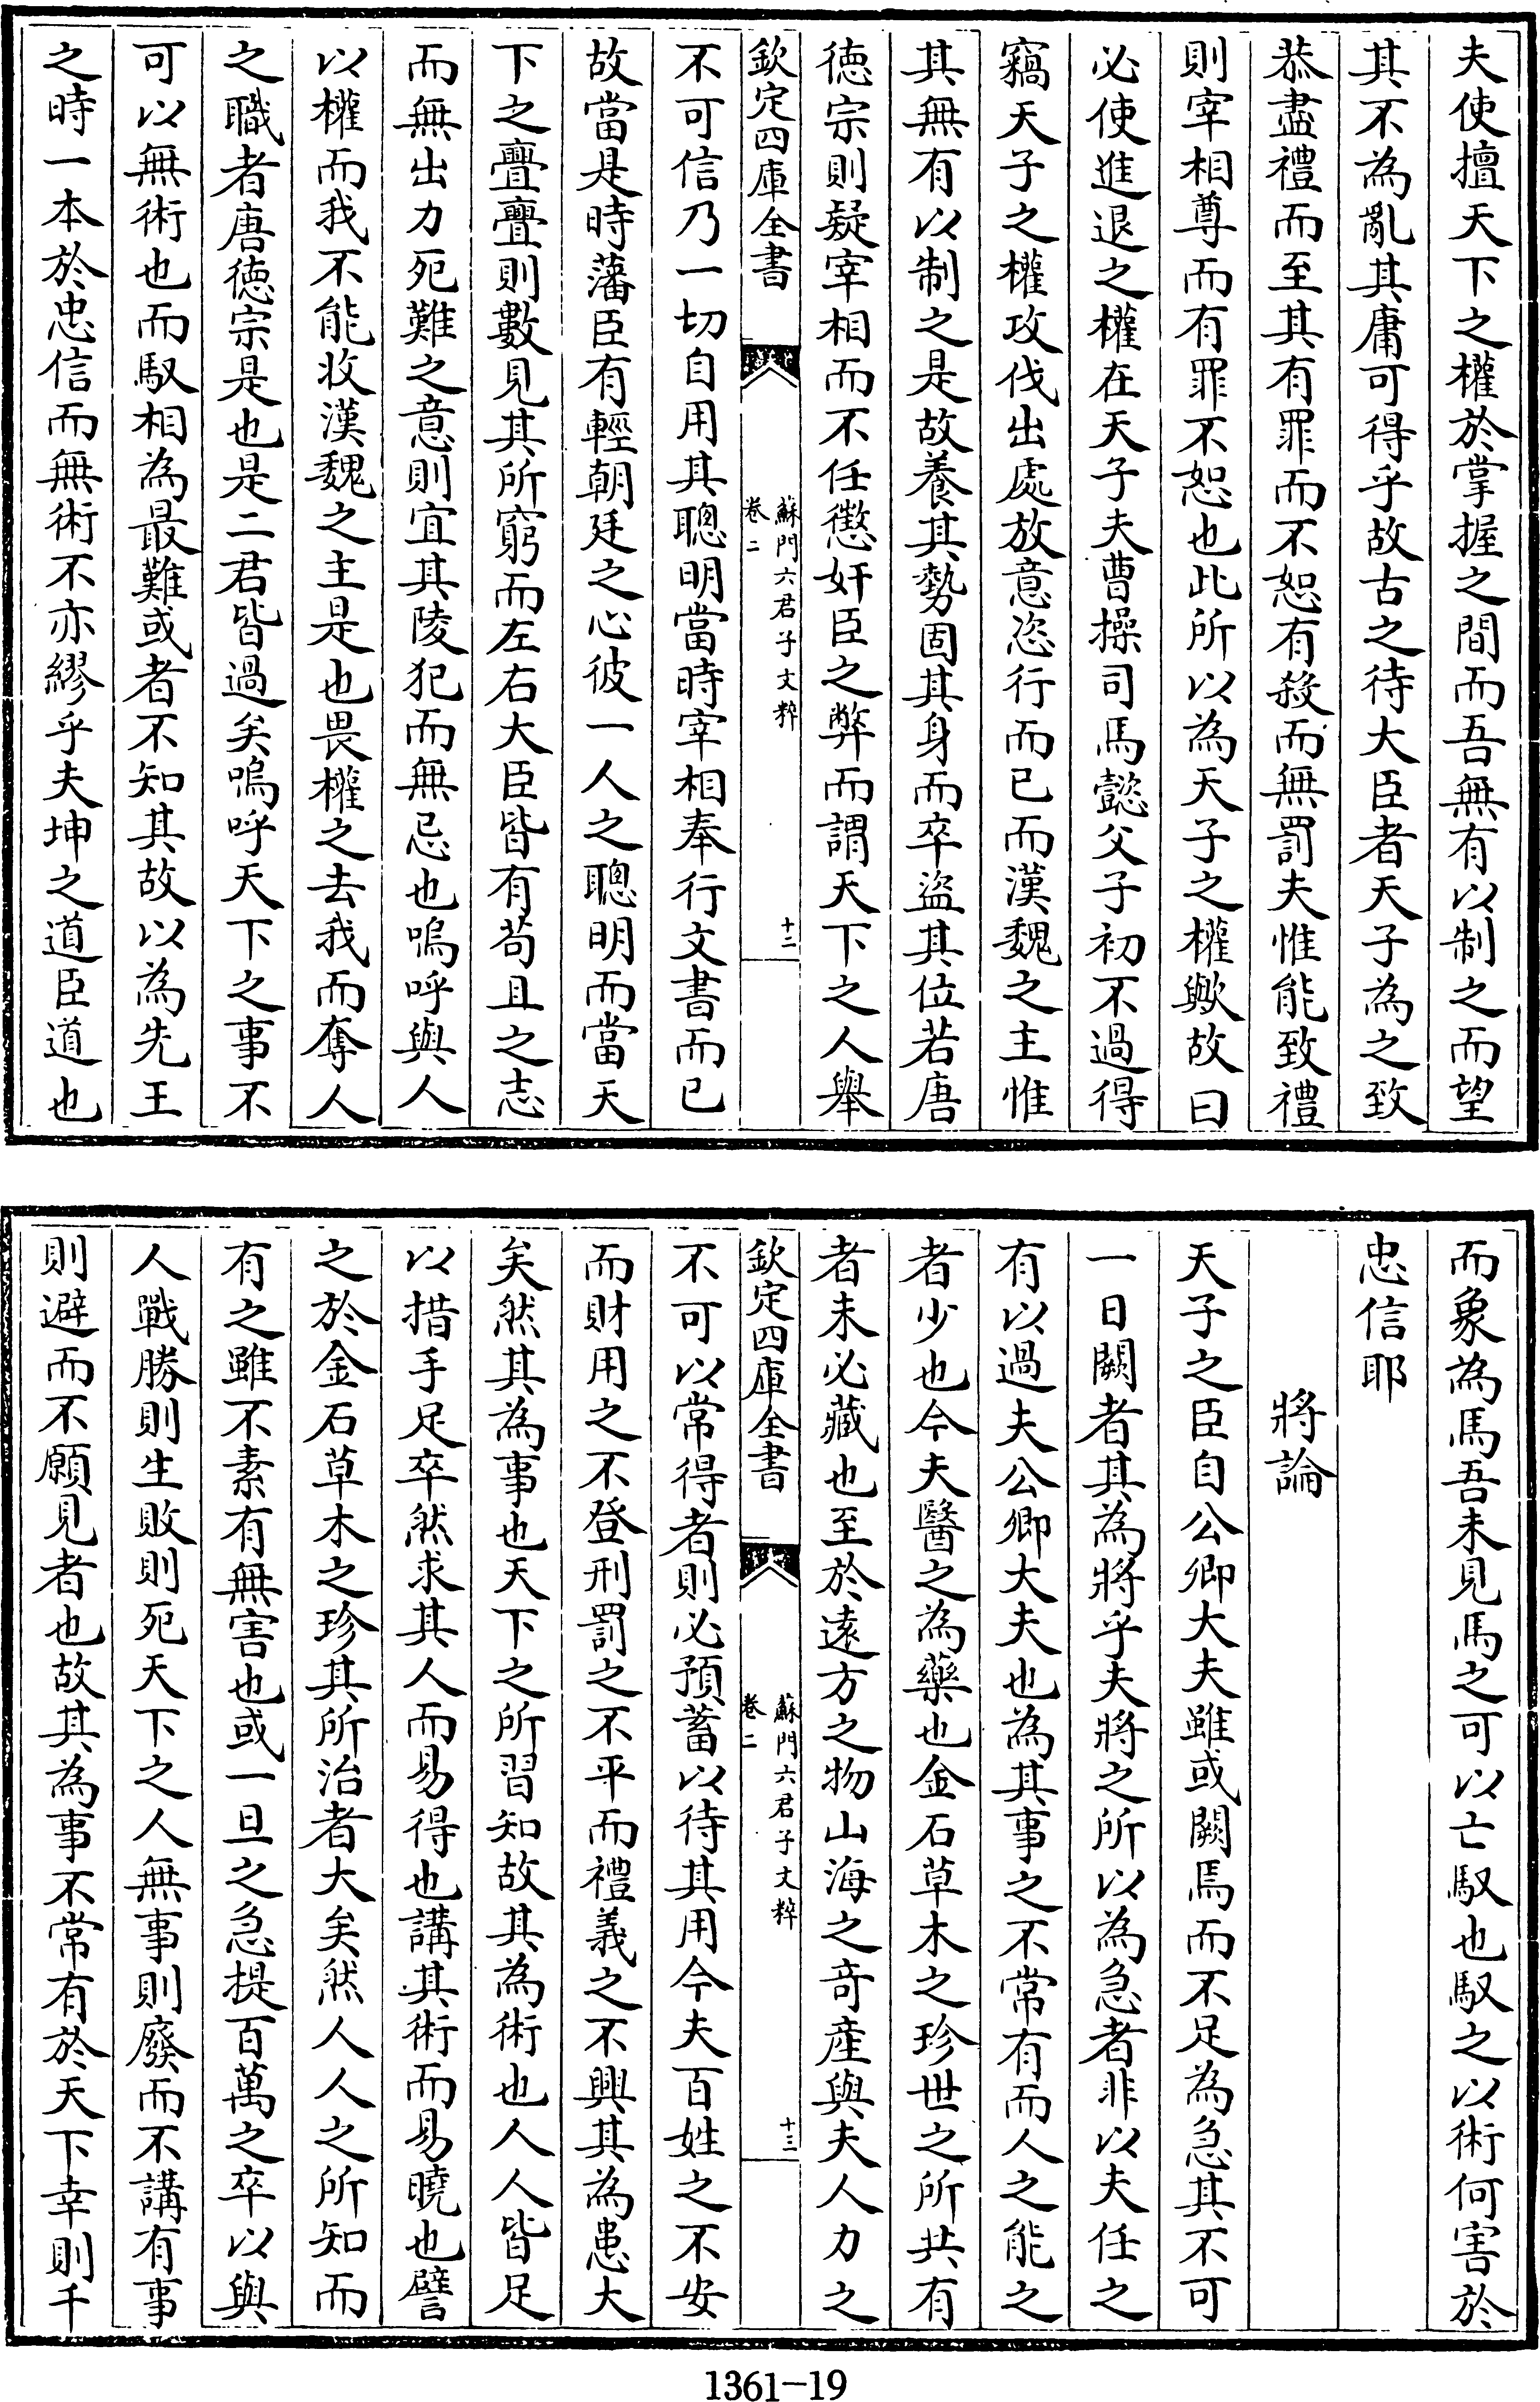 夫使擅天下之權於掌握之間而吾無有以制之而望
其不為亂其庸可得乎故古之待大臣者天子為之致
恭盡禮而至其有罪而不恕有殺而無罰夫惟能致禮
則宰相尊而有罪不恕也此所以為天子之權歟故曰
必使進退之權在天子夫曹操司馬懿父子初不過得
竊天子之權攻伐出處放意恣行而已而漢魏之主惟
其無有以制之是故養其勢固其身而卒盜其位若唐
徳宗則疑宰相而不任懲奸臣之弊而謂天下之人舉
欽定四庫全書
蘇門六君子文粹
卷二
十二
不可信乃一切自用其聰明當時宰相奉行文書而已
故當是時藩臣有輕朝廷之心彼一人之聰明而當天
下之亹亹則數見其所窮而左右大臣皆有苟且之志
而無出力死難之意則宜其陵犯而無忌也嗚呼與人
以權而我不能收漢魏之主是也畏權之去我而奪人
之職者唐徳宗是也是二君皆過矣嗚呼天下之事不
可以無術也而馭相為最難或者不知其故以為先王
之時一本於忠信而無術不亦繆乎夫坤之道臣道也
而象為馬吾未見馬之可以亡馭也馭之以術何害於
忠信耶
將論
天子之臣自公卿大夫雖或闕焉而不足為急其不可
一日闕者其為將乎夫將之所以為急者非以夫任之
有以過夫公卿大夫也為其事之不常有而人之能之
者少也今夫醫之為藥也金石草木之珍世之所共有
者未必藏也至於遠方之物山海之竒產與夫人力之
欽定四庫全書
蘇門六君子文粹
卷二
十三
不可以常得者則必預蓄以待其用今夫百姓之不安
而財用之不登刑罰之不平而禮義之不興其為患大
矣然其為事也天下之所習知故其為術也人人皆足
以措手足卒然求其人而易得也講其術而易曉也譬
之於金石草木之珍其所治者大矣然人人之所知而
有之雖不素有無害也或一旦之急提百萬之卒以與
人戰勝則生敗則死天下之人無事則廢而不講有事
則避而不願見者也故其為事不常有於天下幸則千
1361-19